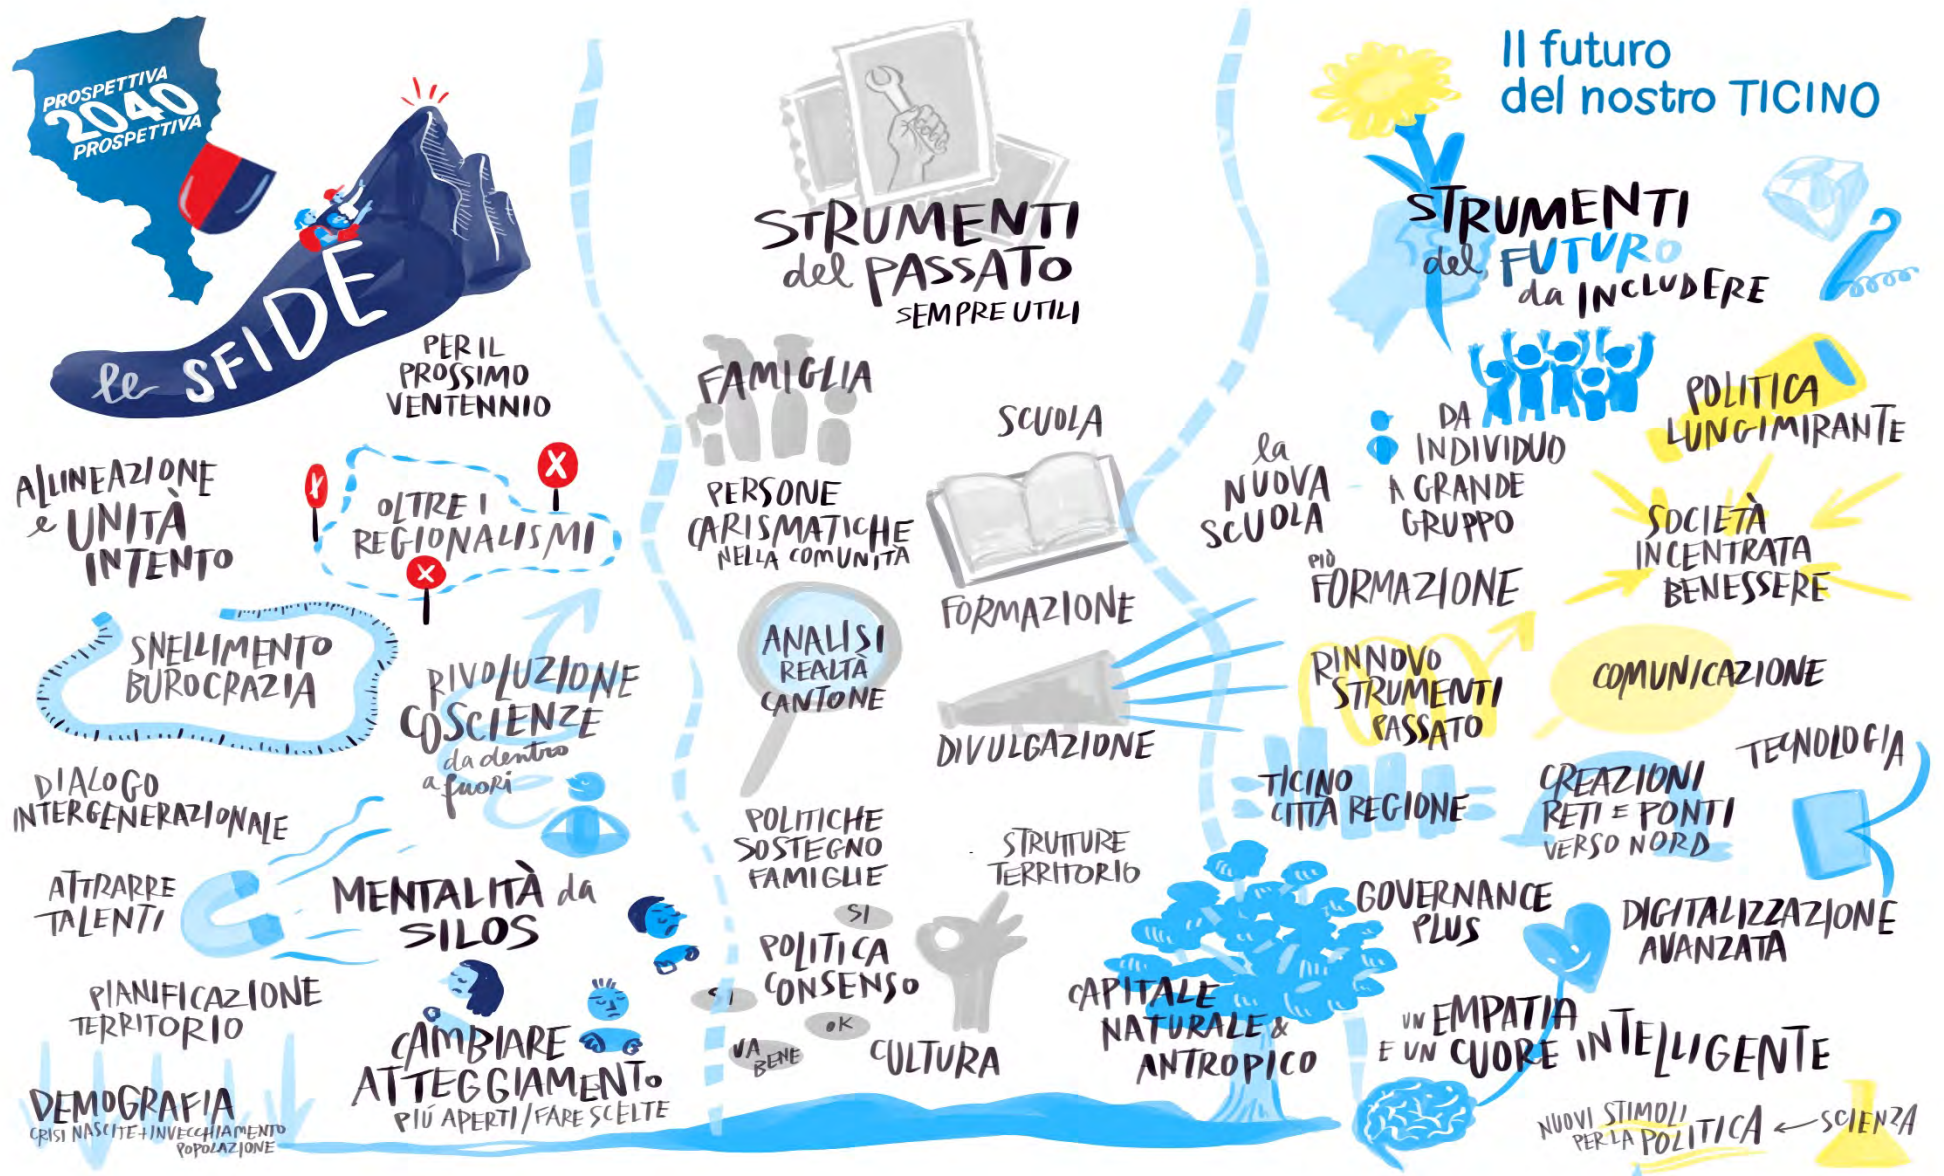 PROSPETTIVA
2040
PROSPETTIVA
le SFIDE
PER IL
PROSSIMO
VENTENNIO
ALLINEAZIONE
e UNITÀ
INTENTO
OLTRE I
REGIONALISMI
SNELLIMENTO
BUROCRAZIA
RIVOLUZIONE
COSCIENZE
da dentro
a fuori
DIALOGO
INTERGENERAZIONALE
ATTRARRE
TALENTI
MENTALITÀ da
SILOS
PIANIFICAZIONE
TERRITORIO
CAMBIARE
ATTEGGIAMENTO
PIÚ APERTI/FARE SCELTE
DEMOGRAFIA
CRISI NASCITE+INVECCHIAMENTO
POPOLAZIONE
STRUMENTI
del PASSATO
SEMPRE UTILI
FAMIGLIA
SCUOLA
PERSONE
CARISMATICHE
NELLA COMUNITÀ
FORMAZIONE
ANALISI
REALTÀ
CANTONE
DIVULGAZIONE
POLITICHE
SOSTEGNO
FAMIGLIE
STRUTTURE
TERRITORIO
SI
POLITICA
CONSENSO
SI
OK
VA
BENE
CULTURA
Il futuro
del nostro TICINO
STRUMENTI
del FUTURO
da INCLUDERE
la
NUOVA
SCUOLA
DA
INDIVIDUO
A GRANDE
GRUPPO
POLITICA
LUNGIMIRANTE
PIÙ
FORMAZIONE
SOCIETÀ
INCENTRATA
BENESSERE
RINNOVO
STRUMENTI
PASSATO
COMUNICAZIONE
TICINO
CITTÀ REGIONE
CREAZIONI
RETI E PONTI
VERSO NORD
TECNOLOGIA
GOVERNANCE
PLUS
DIGITALIZZAZIONE
AVANZATA
CAPITALE
NATURALE &
ANTROPICO
UN EMPATIA
E UN CUORE INTELLIGENTE
NUOVI STIMOLI
PER LA POLITICA
SCIENZA